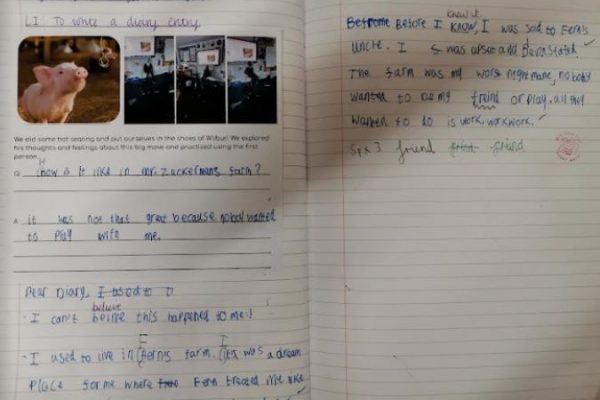 LI: To write a diary entry
We did some hot seating and put ourselves in the shoes of Wilbur! We explored
his thoughts and feelings about this big move and practised using the first
person.
Q How is it like in mr. zuckermans farm?
A it was not that great because nobody wanted
to play with me.
Dear Diary, I used to
believe
I can't beinve this happened to me!
F I
I used to live in ferns farm. it was a dream
Place for me where Fern treated me like
knew it
Before I KNOW, I was sold to Fern's
uncle. I was upset and Devastated.
The farm was my worst nightmare, nobody
wanted to be my freind or play. all they
wanted to do is work, work work.
Spx3 friend friend friend